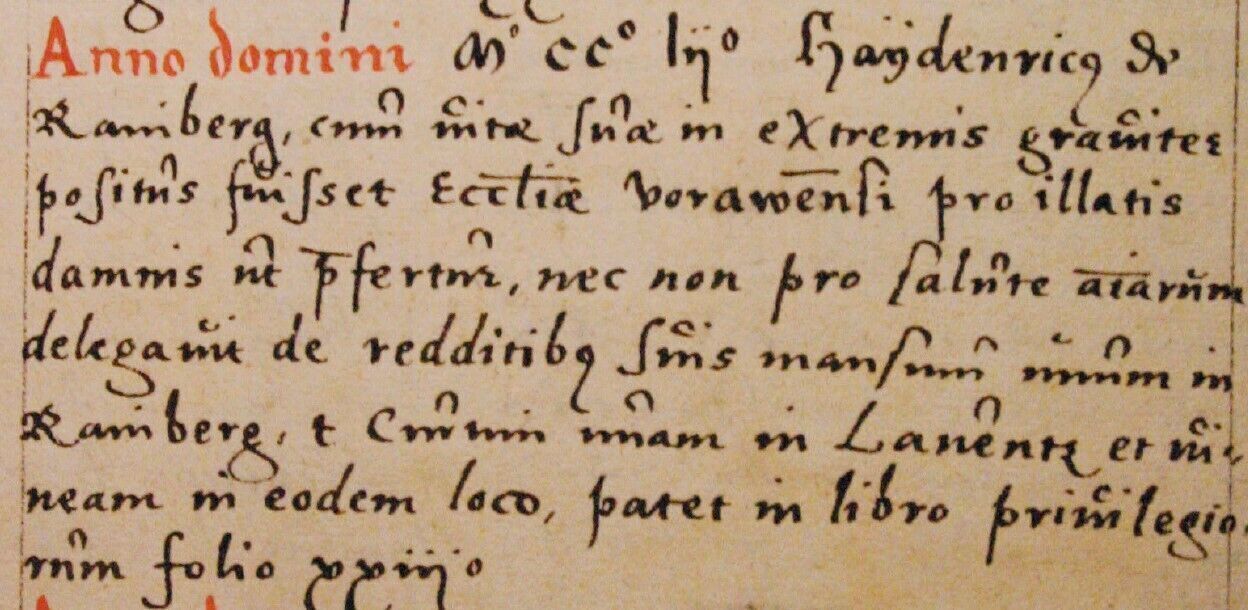 Anno domini M° CC° lij° Haÿdenricꝯ de
Ramberg, cum vitæ suæ in extremis grauiter
positus fuisset Eccl̄iæ Vorawēnsi pro illatis
damnis ut p̄fertur, nec non pro salute āīarum
delegauit de redditibꝯ suis mansum unum in
Ramberg, et Curiam unam in Lauentz et vi-
neam in eodem loco, patet in libro priuilegio-
rum folio xxiiij°